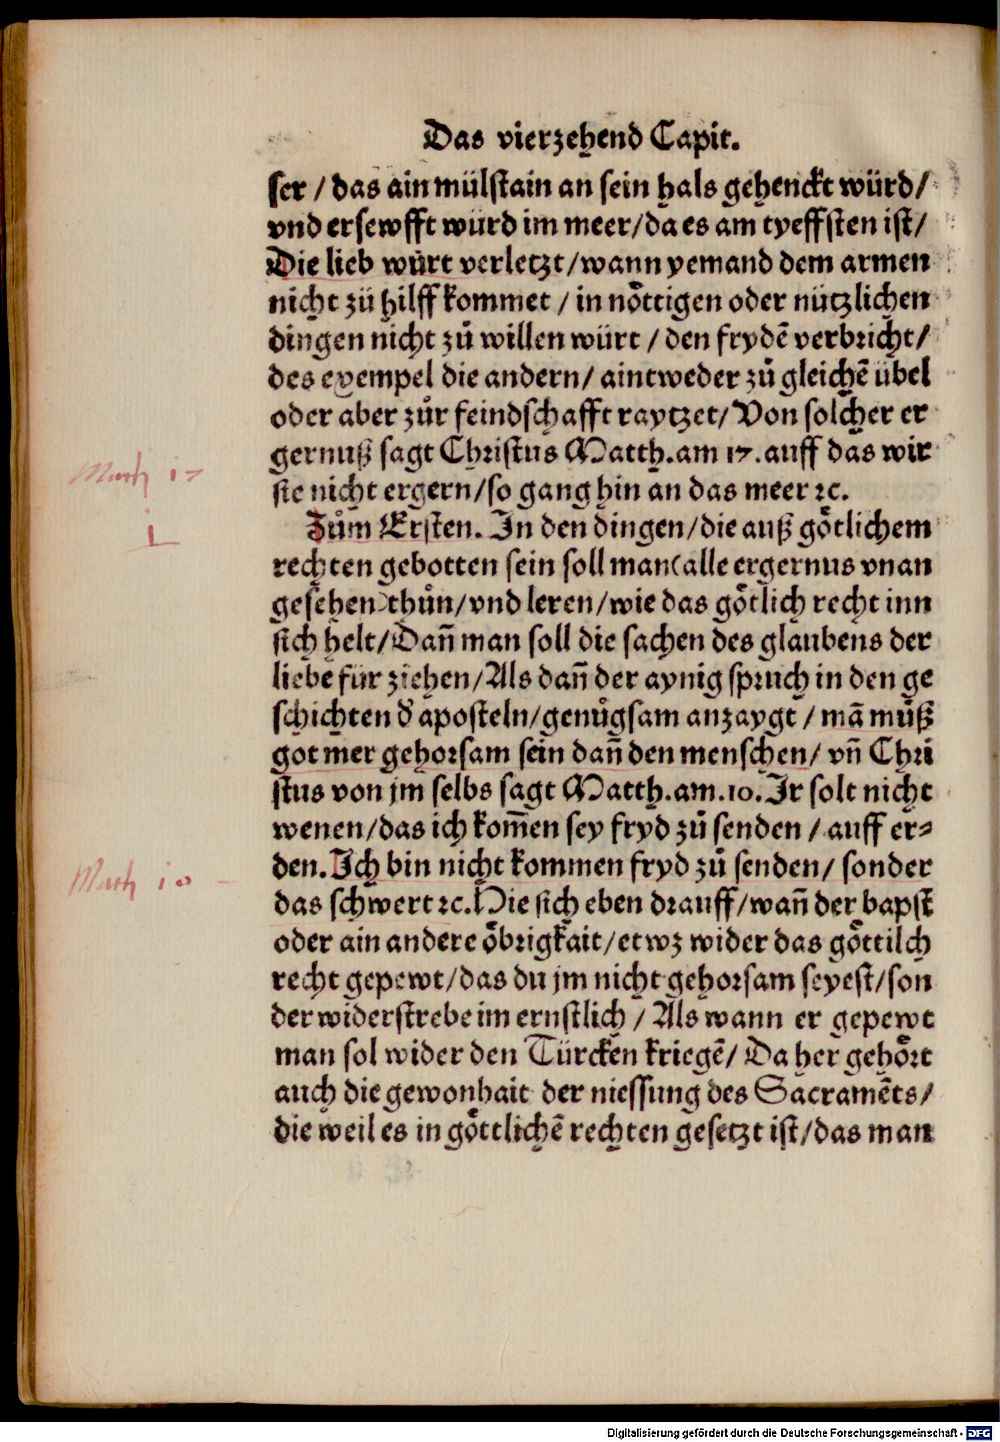 Das vierzehend Capit.
ser / das ain mülstain an sein hals gehenckt würd/
vnd ersewfft wurd im meer/da es am tyeffsten ist/
Die lieb würt verletzt/wann yemand dem armen
nicht zů hilff kommet / in nöttigen oder nützlichen
dingen nicht zů willen würt / den frydē verbricht/
des eyempel die andern/ aintweder zů gleichē übel
oder aber zůr feindschafft raytzet/ Von solcher er
gernuß sagt Christus Matth.am 17.auff das wir
Math 17
sie nicht ergern/so gang hin an das meer ꝛc.
Zům Ersten. In den dingen/die auß götlichem
1
rechten gebotten sein soll man(alle ergernus vnan
gesehen)thůn/vnd leren/wie das götlich recht inn
sich helt/Dañ man soll die sachen des glaubens der
liebe für ziehen/Als dañ der aynig spruch in den ge
schichten d̓ aposteln/genůgsam anzaygt / mā můß
got mer gehorsam sein dañ den menschen/ vñ Chri
stus von jm selbs sagt Matth.am.10.Ir solt nicht
wenen/das ich kom̄en sey fryd zů senden / auff er⸗
den.Ich bin nicht kommen fryd zů senden/ sonder
Math 10
das schwert ꝛc.Hie sich eben drauff/wañ der bapst
oder ain andere öbrigkait/etwz wider das göttilch
recht gepewt/das du jm nicht gehorsam seyest/son
der widerstrebe im ernstlich / Als wann er gepewt
man sol wider den Türcken kriegē/ Da her gehört
auch die gewonhait der niessung des Sacramēts/
die weil es in göttlichē rechten gesetzt ist/das man
Digitalisierung gefördert durch die Deutsche Forschungsgemeinschaft - DFG